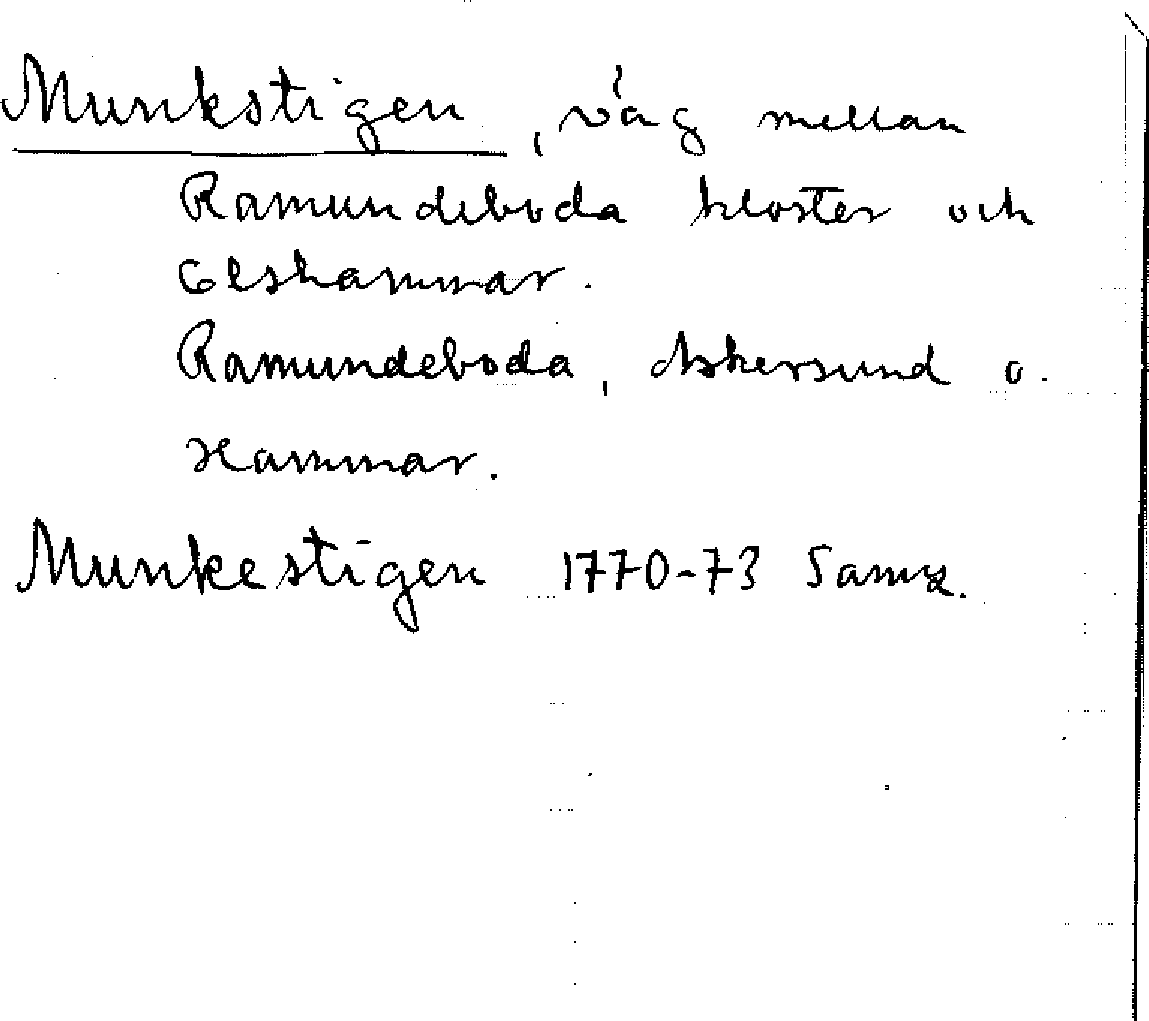 Munkstigen, väg mellan
Ramundeboda kloster och
Olshammar.
Ramundeboda, Askersund o.
Hammar.
Munkestigen 1770-73 Saml.